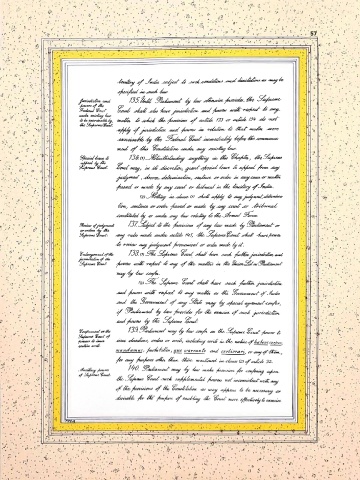 57
territory of India subject to such conditions and limitations as may be
specified in such law.
Jurisdiction and
powers of the
Federal Court
under existing law
to be exercisable by
the Supreme Court.
135. Until Parliament by law otherwise provides, the Supreme
Court shall also have jurisdiction and powers with respect to any
matter to which the provisions of article 133 or article 134 do not
apply if jurisdiction and powers in relation to that matter were
exercisable by the Federal Court immediately before the commence-
ment of this Constitution under any existing law.
Special leave to
appeal by the
Supreme Court.
136. (1) Notwithstanding anything in this Chapter, the Supreme
Court may, in its discretion, grant special leave to appeal from any
judgment, decree, determination, sentence or order in any cause or matter
passed or made by any court or tribunal in the territory of India.
(2) Nothing in clause (1) shall apply to any judgment, determina-
tion, sentence or order passed or made by any court or tribunal
constituted by or under any law relating to the Armed Forces.
Review of judgments
or orders by the
Supreme Court.
137. Subject to the provisions of any law made by Parliament or
any rules made under article 145, the Supreme Court shall have power
to review any judgment pronounced or order made by it.
Enlargement of the
jurisdiction of the
Supreme Court.
138. (1) The Supreme Court shall have such further jurisdiction and
powers with respect to any of the matters in the Union List as Parliament
may by law confer.
(2) The Supreme Court shall have such further jurisdiction
and powers with respect to any matter as the Government of India
and the Government of any State may by special agreement confer,
if Parliament by law provides for the exercise of such jurisdiction
and powers by the Supreme Court.
Conferment on the
Supreme Court of
powers to issue
certain writs.
139. Parliament may by law confer on the Supreme Court power to
issue directions, orders or writs, including writs in the nature of habeas corpus,
mandamus, prohibition, quo warranto and certiorari, or any of them,
for any purposes other than those mentioned in clause (2) of article 32.
Ancillary powers
of Supreme Court.
140. Parliament may by law make provision for conferring upon
the Supreme Court such supplemental powers not inconsistent with any
of the provisions of this Constitution as may appear to be necessary or
desirable for the purpose of enabling the Court more effectively to exercise